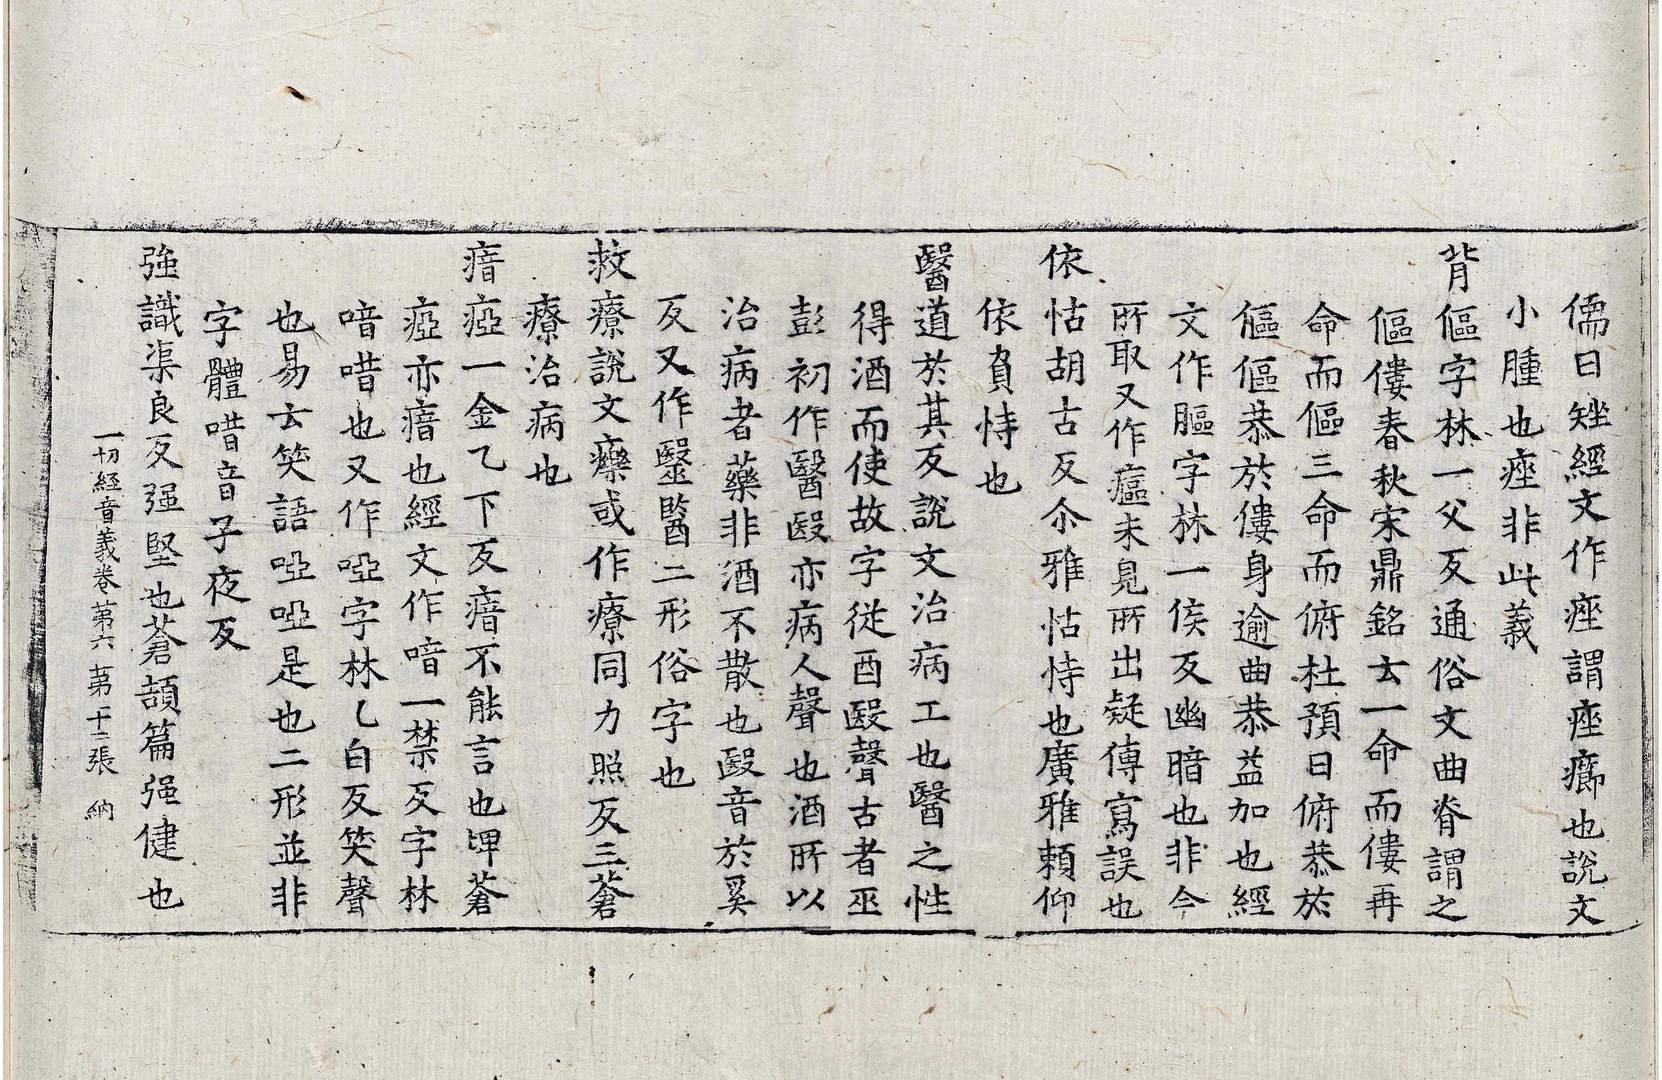 儒曰矬經文作痤謂痤癤也說文
小腫也痤非此義
背傴字林一父反通俗文曲脊謂之
傴僂春秋宋鼎銘云一命而僂再
命而傴三命而俯杜預曰俯恭於
傴傴恭於僂身逾曲恭益加也經
文作䐟字林一侯反幽暗也非今
所取又作㽱未見所出疑傳寫誤也
依怙胡古反尒雅怙恃也廣雅賴仰
依負恃也
醫道於其反說文治病工也醫之性
得酒而使故字從酉殹聲古者巫
彭初作醫殹亦病人聲也酒所以
治病者藥非酒不散也殹音於奚
反又作毉䣽二形俗字也
救療說文𤻲或作療同力照反三蒼
療治病也
瘖瘂一金乙下反瘖不能言也埤蒼
瘂亦瘖也經文作喑一禁反字林
喑唶也又作啞字林乙白反笑聲
也易云笑語啞啞是也二形並非
字體唶音子夜反
強識渠良反强堅也蒼頡篇强健也
一切經音義卷第六 第十二張 納